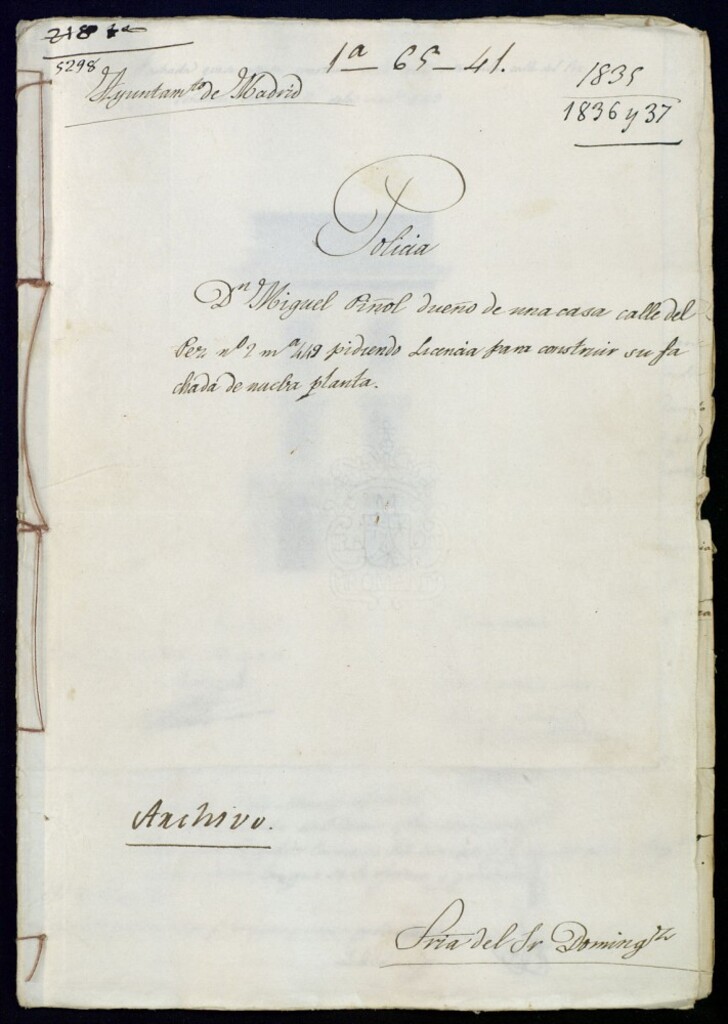 5298
1ª 65-41.
Ayuntamto de Madrid
1835
1836 y 37
Policia
Dn Miguel Piñol dueño de una casa calle del
Pez nº 2 mª 449 pidiendo Licencia para construir su fa
chada de nueba planta.
Archivo.
Sria del Sr Domingz